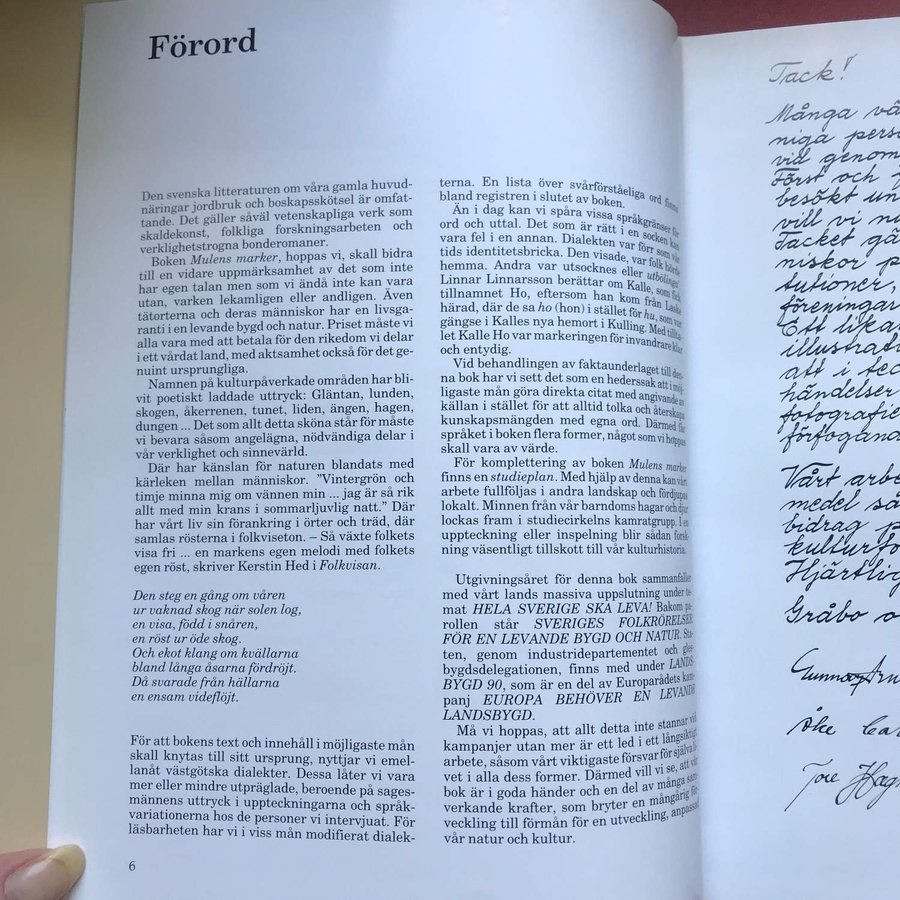 Förord
Den svenska litteraturen om våra gamla huvud-
näringar jordbruk och boskapsskötsel är omfat-
tande. Det gäller såväl vetenskapliga verk som
skaldekonst, folkliga forskningsarbeten och
verklighetstrogna bonderomaner.
Boken Mulens marker, hoppas vi, skall bidra
till en vidare uppmärksamhet av det som inte
har egen talan men som vi ändå inte kan vara
utan, varken lekamligen eller andligen. Även
tätorterna och deras människor har en livsga-
ranti i en levande bygd och natur. Priset måste vi
alla vara med att betala för den rikedom vi delar
i ett vårdat land, med aktsamhet också för det ge-
nuint ursprungliga.
Namnen på kulturpåverkade områden har bli-
vit poetiskt laddade uttryck: Gläntan, lunden,
skogen, åkerrenen, tunet, liden, ängen, hagen,
dungen ... Det som allt detta sköna står för måste
vi bevara såsom angelägna, nödvändiga delar i
vår verklighet och sinnevärld.
Där har känslan för naturen blandats med
kärleken mellan människor. "Vintergrön och
timje minna mig om vännen min ... jag är så rik
allt med min krans i sommarljuvlig natt." Där
har vårt liv sin förankring i örter och träd, där
samlas rösterna i folkviseton. – Så växte folkets
visa fri ... en markens egen melodi med folkets
egen röst, skriver Kerstin Hed i Folkvisan.
Den steg en gång om våren
ur vaknad skog när solen log,
en visa, född i snåren,
en röst ur öde skog.
Och ekot klang om kvällarna
bland långa åsarna fördröjt.
Då svarade från hällarna
en ensam videflöjt.
För att bokens text och innehåll i möjligaste mån
skall knytas till sitt ursprung, nyttjar vi emel-
lanåt västgötska dialekter. Dessa låter vi vara
mer eller mindre utpräglade, beroende på sages-
männens uttryck i uppteckningarna och språk-
variationerna hos de personer vi intervjuat. För
läsbarheten har vi i viss mån modifierat dialek-
6
terna. En lista över svårförståeliga ord finns
bland registren i slutet av boken.
Än i dag kan vi spåra vissa språkgränser för
ord och uttal. Det som är rätt i en socken kan
vara fel i en annan. Dialekten var förr som vår
tids identitetsbricka. Den visade, var folk hörde
hemma. Andra var utsocknes eller utbölinga!
Linnar Linnarsson berättar om Kalle, som fick
tillnamnet Ho, eftersom han kom från Laske
härad, där de sa ho (hon) i stället för hu, som var
gängse i Kalles nya hemort i Kulling. Med tillta-
let Kalle Ho var markeringen för invandrare klar
och entydig.
Vid behandlingen av faktaunderlaget till den-
na bok har vi sett det som en hederssak att i möj-
ligaste mån göra direkta citat med angivande av
källan i stället för att alltid tolka och återskapa
kunskapsmängden med egna ord. Därmed får
språket i boken flera former, något som vi hoppas
skall vara av värde.
För komplettering av boken Mulens marker
finns en studieplan. Med hjälp av denna kan vårt
arbete fullföljas i andra landskap och fördjupas
lokalt. Minnen från vår barndoms hagar och djur
lockas fram i studiecirkelns kamratgrupp. I en
uppteckning eller inspelning blir sådan forsk-
ning väsentligt tillskott till vår kulturhistoria.
Utgivningsåret för denna bok sammanfaller
med vårt lands massiva uppslutning under te-
mat HELA SVERIGE SKA LEVA! Bakom pa-
rollen står SVERIGES FOLKRÖRELSER
FÖR EN LEVANDE BYGD OCH NATUR. Sta-
ten, genom industridepartementet och gles-
bygdsdelegationen, finns med under LANDS-
BYGD 90, som är en del av Europarådets kam-
panj EUROPA BEHÖVER EN LEVANDE
LANDSBYGD.
Må vi hoppas, att allt detta inte stannar vid
kampanjer utan mer är ett led i ett långsiktigt
arbete, såsom vårt viktigaste försvar för själva li-
vet i alla dess former. Därmed vill vi se, att vår
bok är i goda händer och en del av många sam-
verkande krafter, som bryter en mångårig för
veckling till förmån för en utveckling, anpassad
vår natur och kultur.
Tack!
Många vä
niga perso
vid genom
Först och
besökt un
vill vi nu
Tacket gä
niskor p
tutioner,
föreningar
Ett lika
illustrati
att i tec
händelser
fotografie
förfogand
Vårt arbe
medel så
bidrag p
kulturfo
Hjärtlig
Gråbo o
Gunnar
Åke
Tore